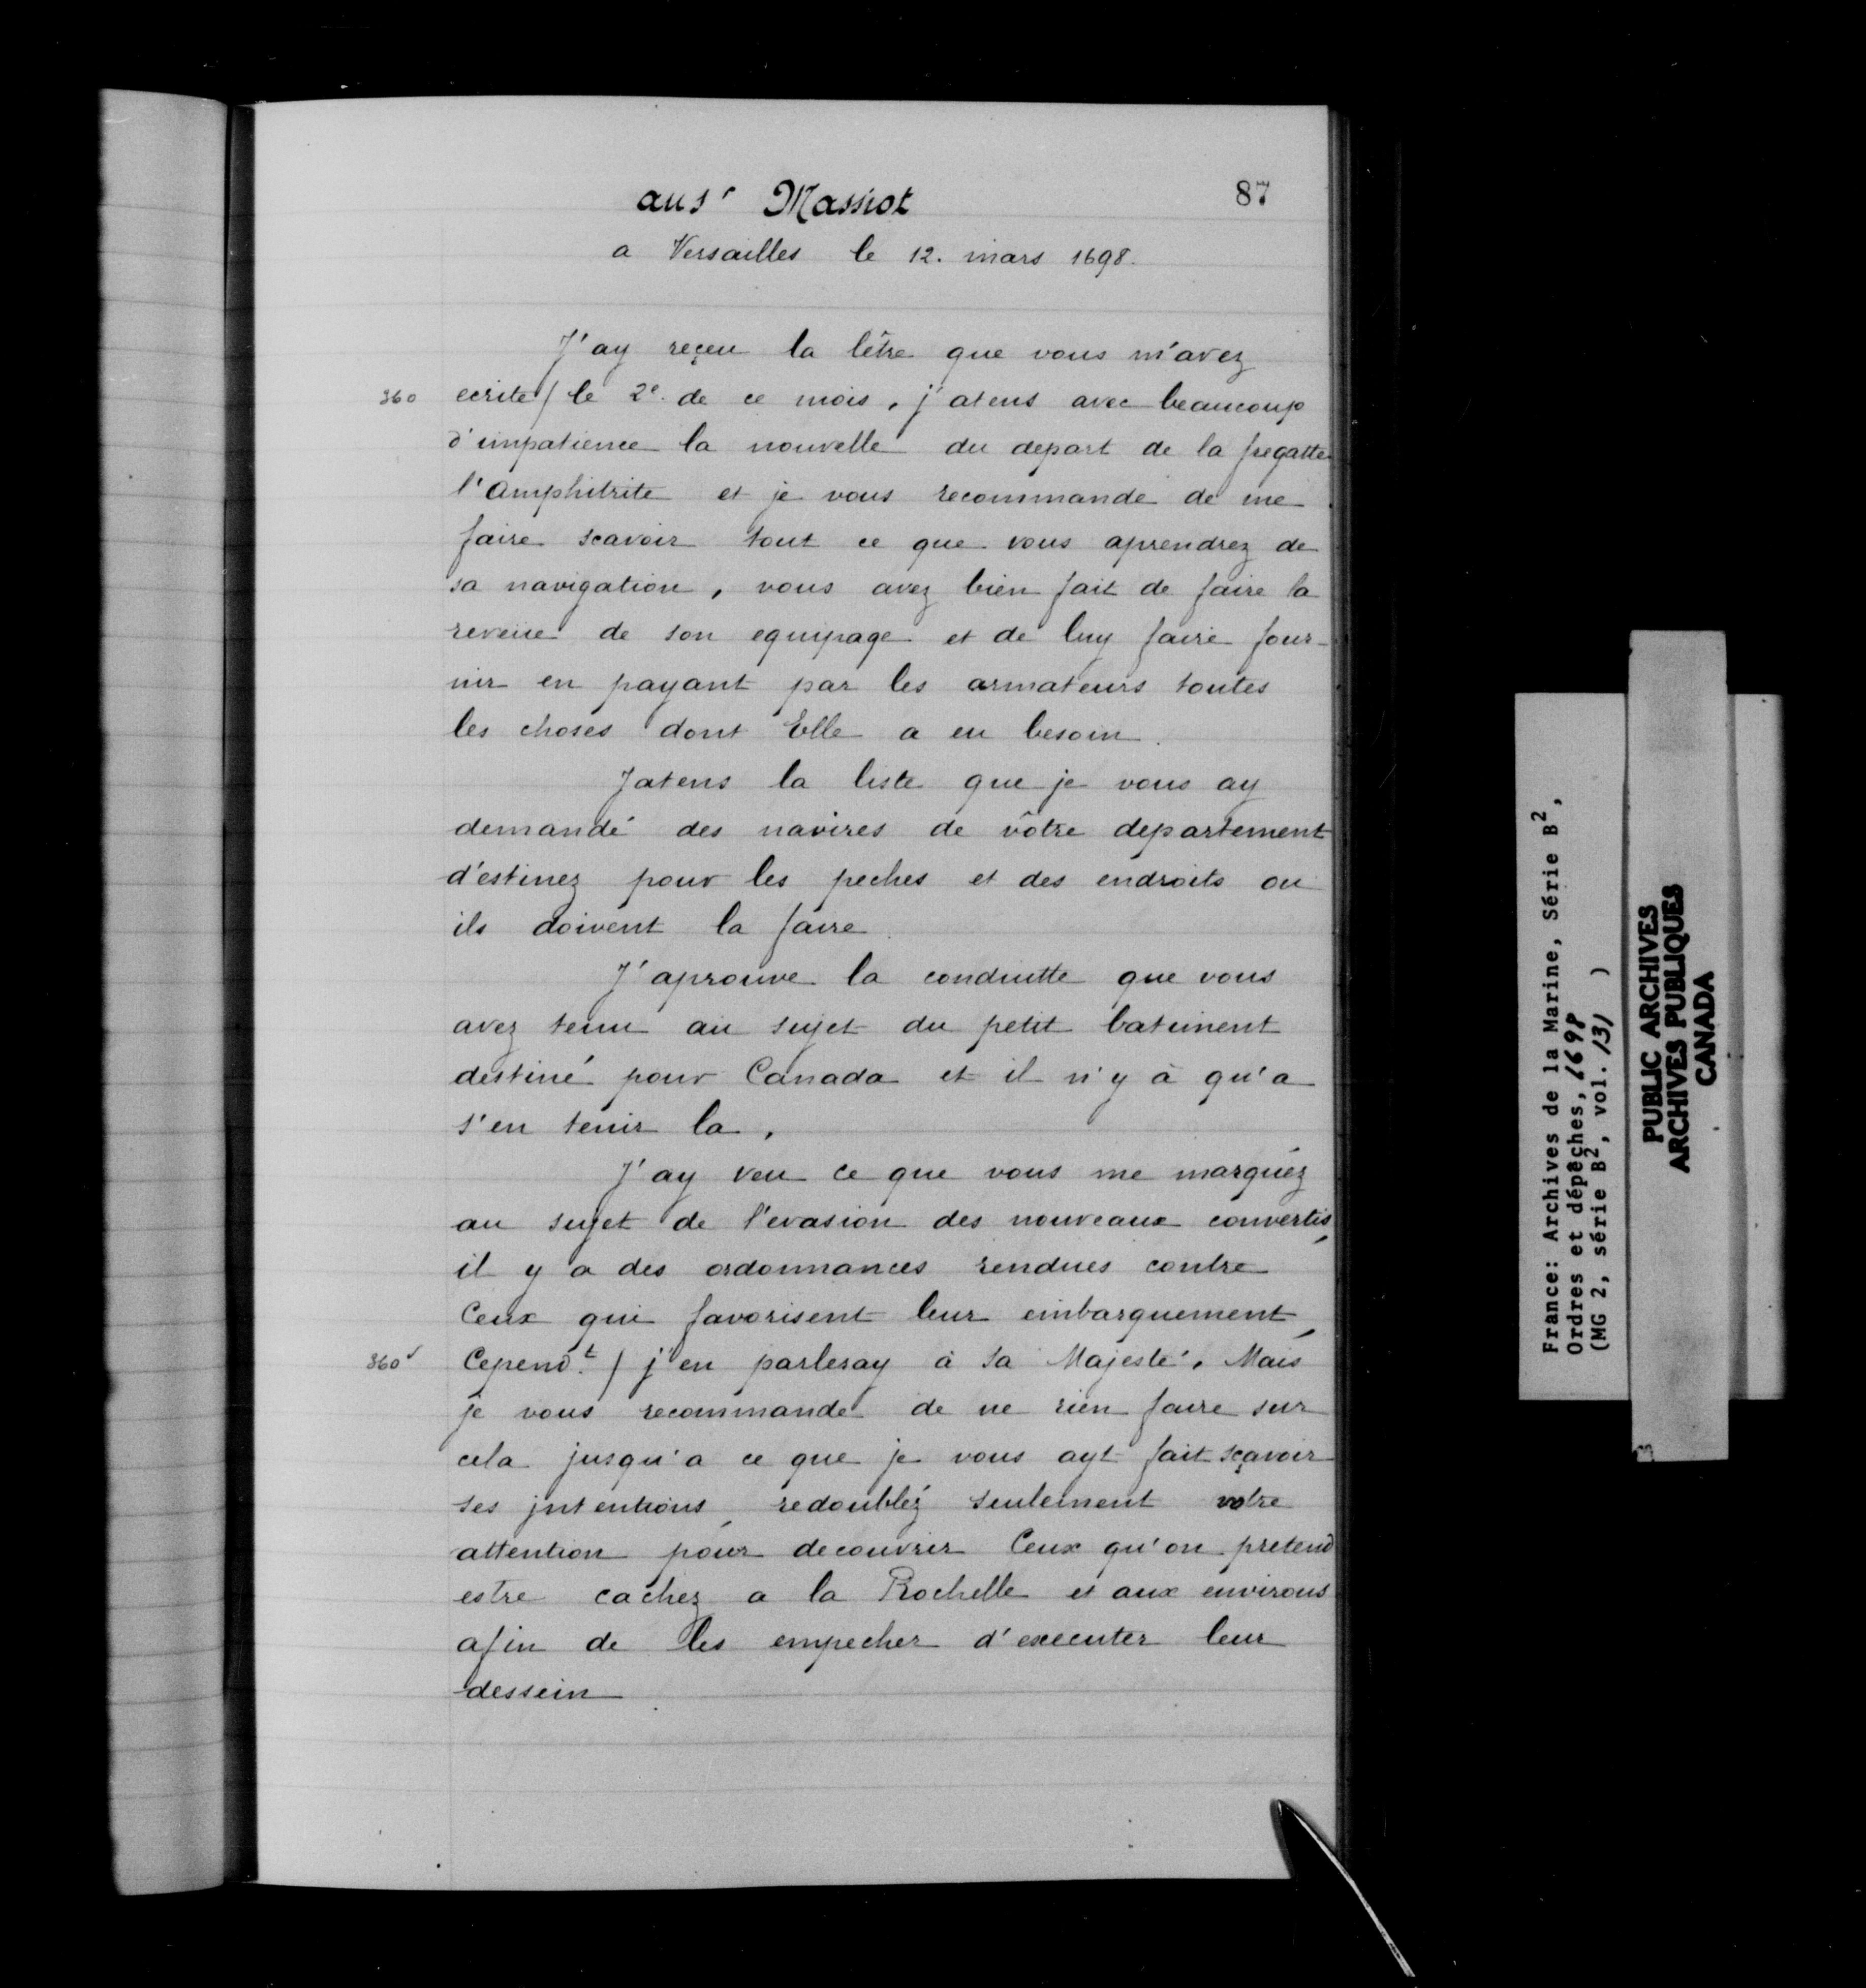 87
au sr Massiot
a Versailles le 12. mars 1698.
J'ay reçeu la lêtre que vous m'avez
360 ecrite / le 2e. de ce mois, j'atens avec beaucoup
d'impatience la nouvelle du depart de la fregatte
l'Amphitrite et je vous recommande de me
faire scavoir tout ce que vous aprendrez de
sa navigation, vous avez bien fait de faire la
reveüe de son equipage et de luy faire four-
nir en payant par les armateurs toutes
les choses dont Elle a eu besoin.
Jatens la liste que je vous ay
demandé des navires de vôtre departement
d'estinez pour les peches et des endroits ou
ils doivent la faire.
J'aprouve la conduitte que vous
avez tenu au sujet du petit batiment
destiné pour Canada et il n'y à qu'a
s'en tenir la,
J'ay veu ce que vous me marquéz
au sujet de l'evasion des nouveaux convertis,
il y a des ordonnances rendues contre
Ceux qui favorisent leur embarquement,
360v Cepend.t / j'en parleray à sa Majesté, Mais
je vous recommande de ne rien faire sur
cela jusqu'a ce que je vous ayt fait sçavoir
ses jntentions, redoubléz seulement votre
attention pour decouvrir Ceux qu'on pretend
estre cachez a la Rochelle et aux environs
afin de les empecher d'executer leur
dessein
France: Archives de la Marine, Série B2,
Ordres et dépêches, 1698
(MG 2, série B2, vol. 131 )
PUBLIC ARCHIVES
ARCHIVES PUBLIQUES
CANADA